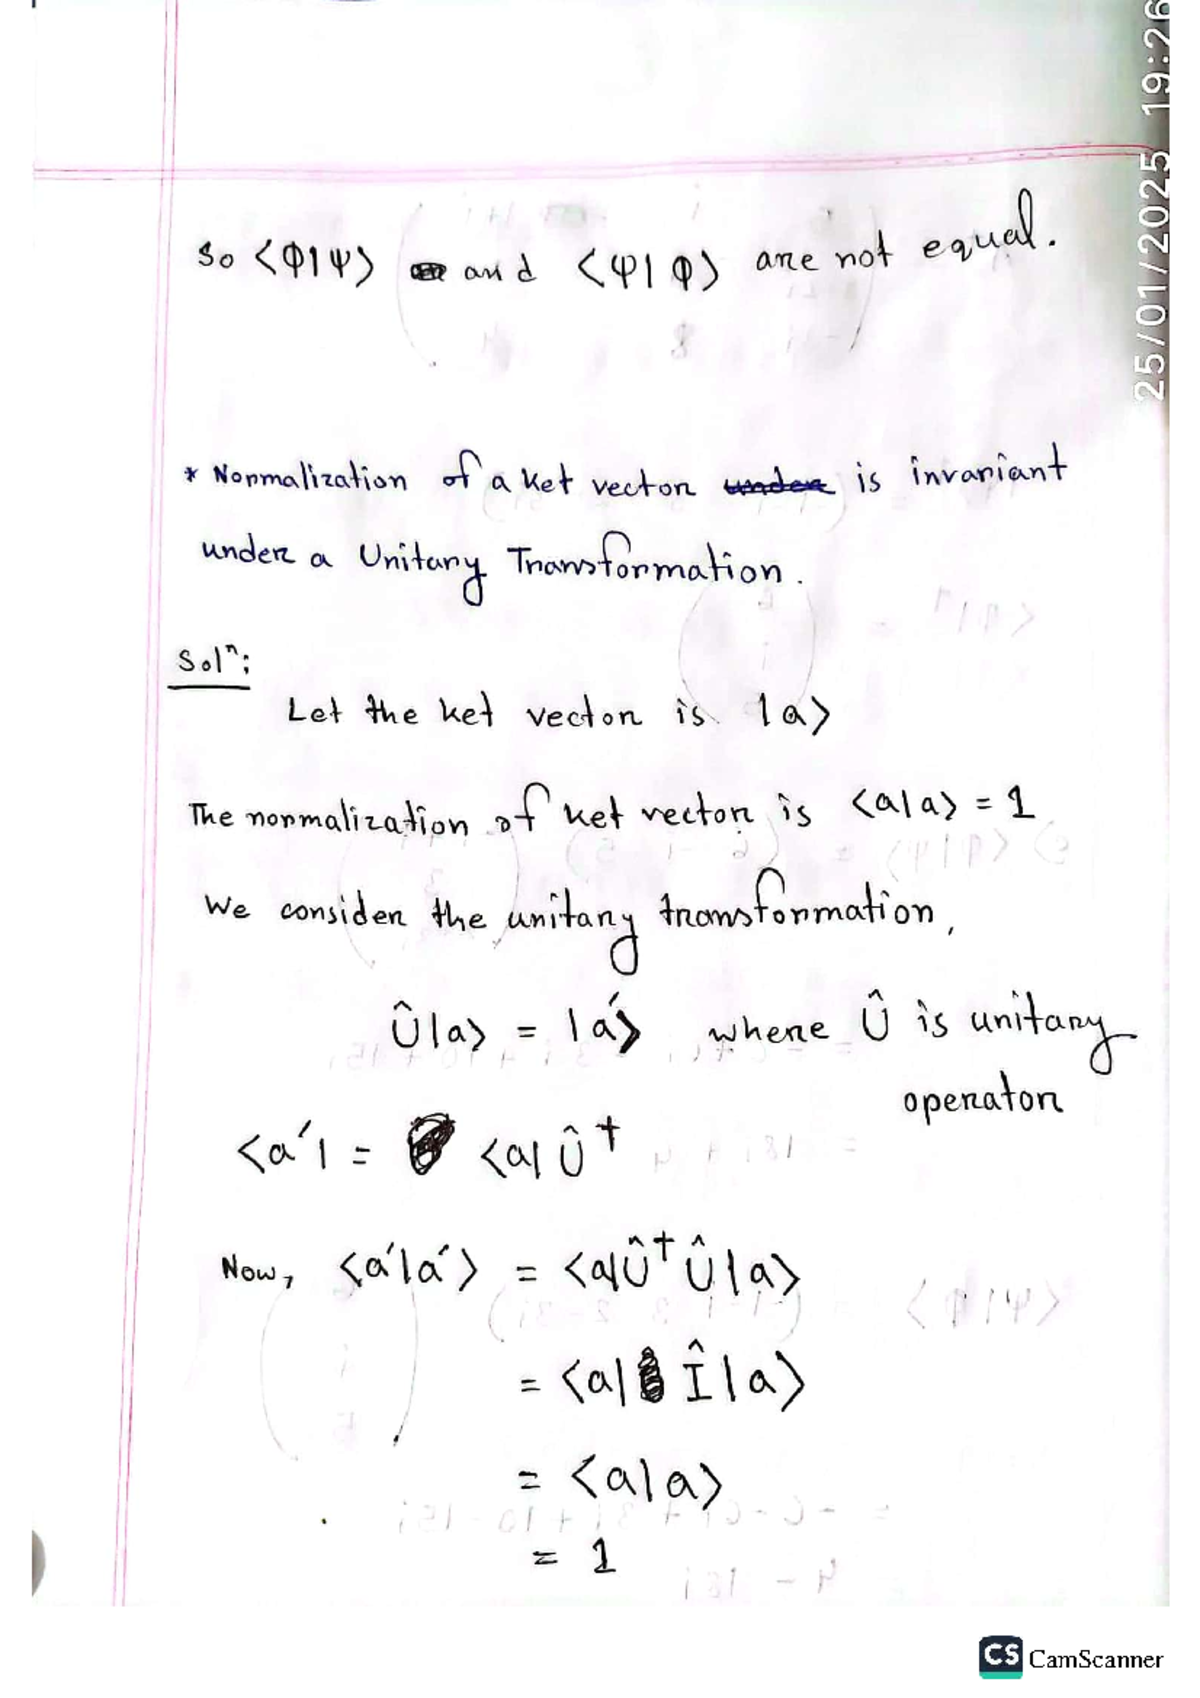 25/01/2025 19:26
So ⟨Φ|Ψ⟩ and ⟨Ψ|Φ⟩ are not equal.
* Normalization of a ket vector under is invariant
under a Unitary Transformation.
Solⁿ:
Let the ket vector is |a⟩
The normalization of ket vector is ⟨a|a⟩ = 1
We consider the unitary transformation,
Û|a⟩ = |a′⟩ where Û is unitary
operator
⟨a′| = ⟨a|Û†
Now, ⟨a′|a′⟩ = ⟨a|Û†Û|a⟩
= ⟨a|Î|a⟩
= ⟨a|a⟩
= 1
CS CamScanner